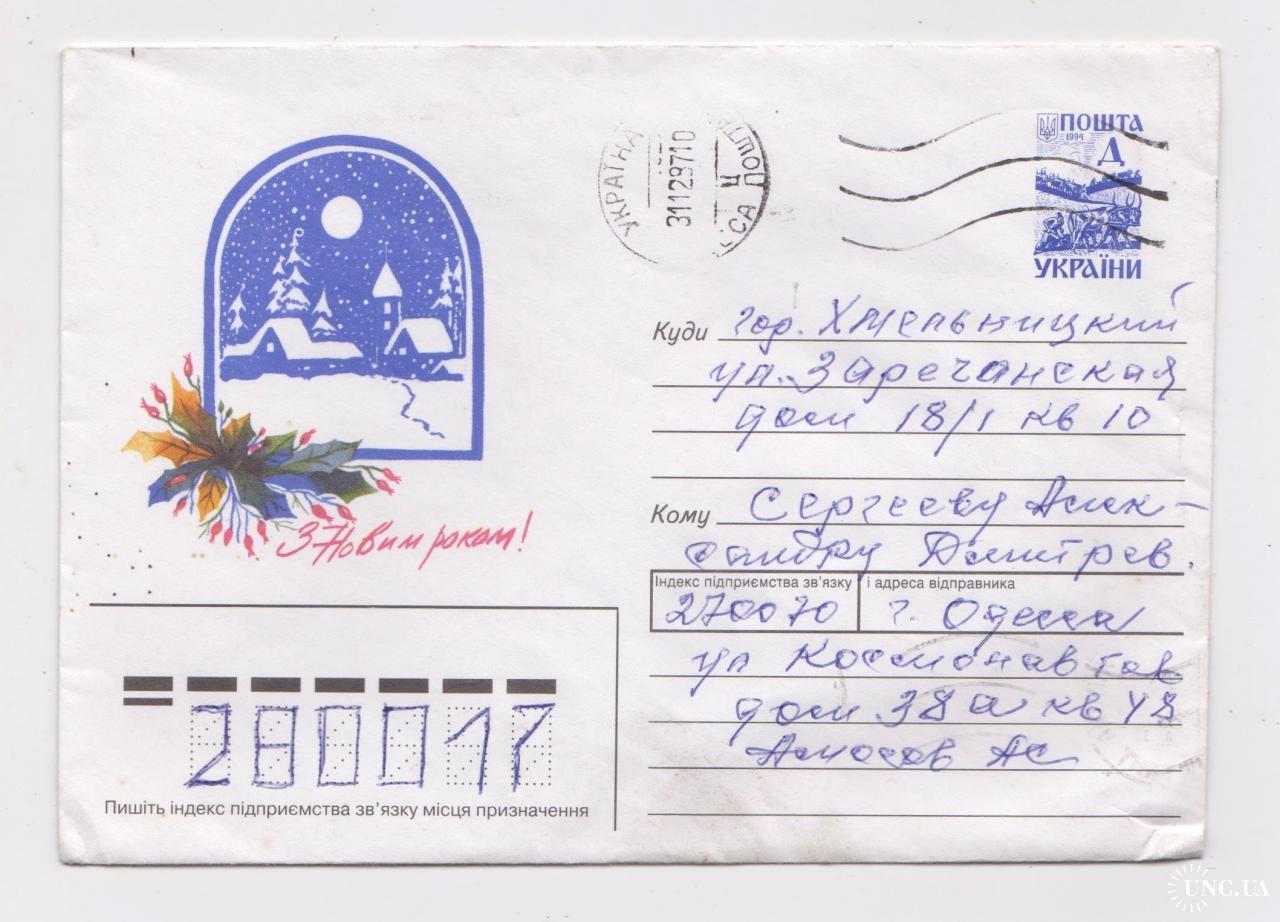 УКРАЇНА
31129710
ПОШТА
1994
Д
УКРАЇНИ
З Новим роком!
Куди гор. Хмельницкий
ул. Заречанская
дом 18/1 кв 10
Кому Сергееву Алек-
сандру Дмитрев.
Індекс підприємства зв'язку і адреса відправника
270070 г. Одесса
ул Космонавтов
дом 38 а кв 48
Амосов АС
280017
Пишіть індекс підприємства зв'язку місця призначення
UNC.UA